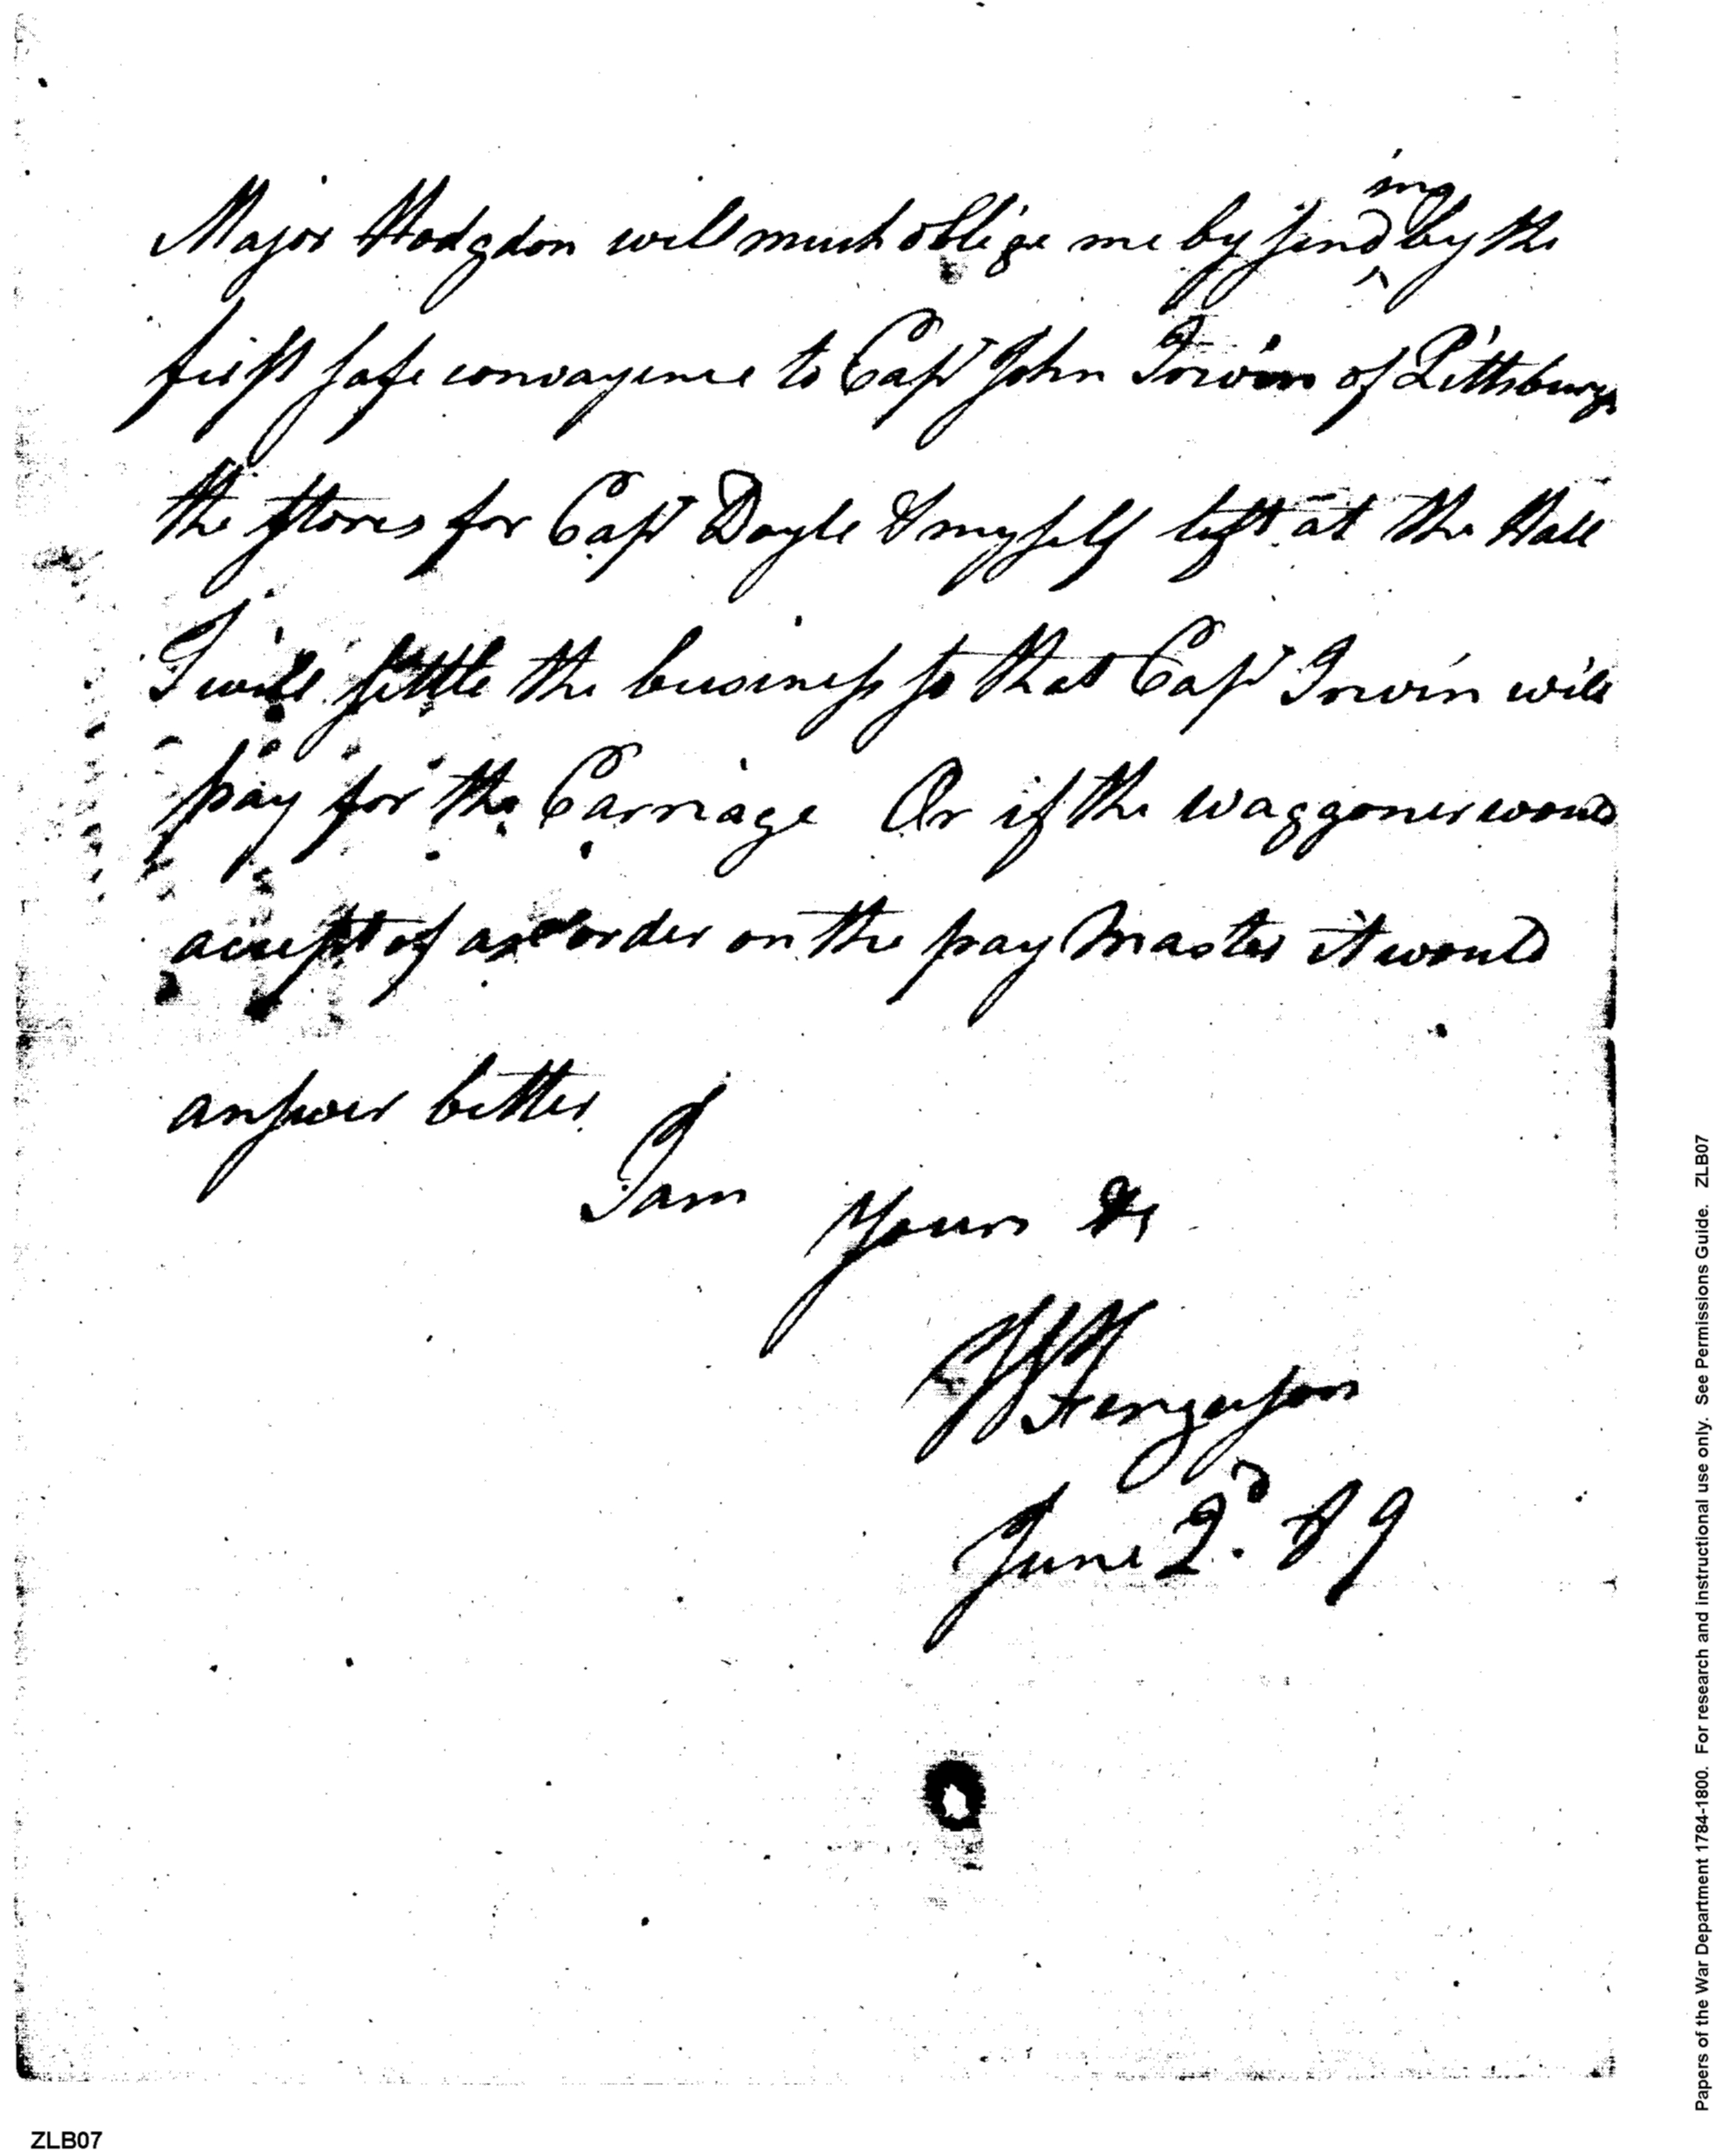 Major Hodgdon will much oblige me by sending by the
first safe convayence to Capt John Irwin of Pittsburgh
the stores for Capt Doyle & myself left at the Hall
I will settle the business so that Capt Irwin will
pay for the Carriage Or if the waggoner would
accept of an order on the pay Master it would
answer better
I am Yours &c
W Ferguson
June 2d. 89
Papers of the War Department 1784-1800. For research and instructional use only. See Permissions Guide. ZLB07
ZLB07